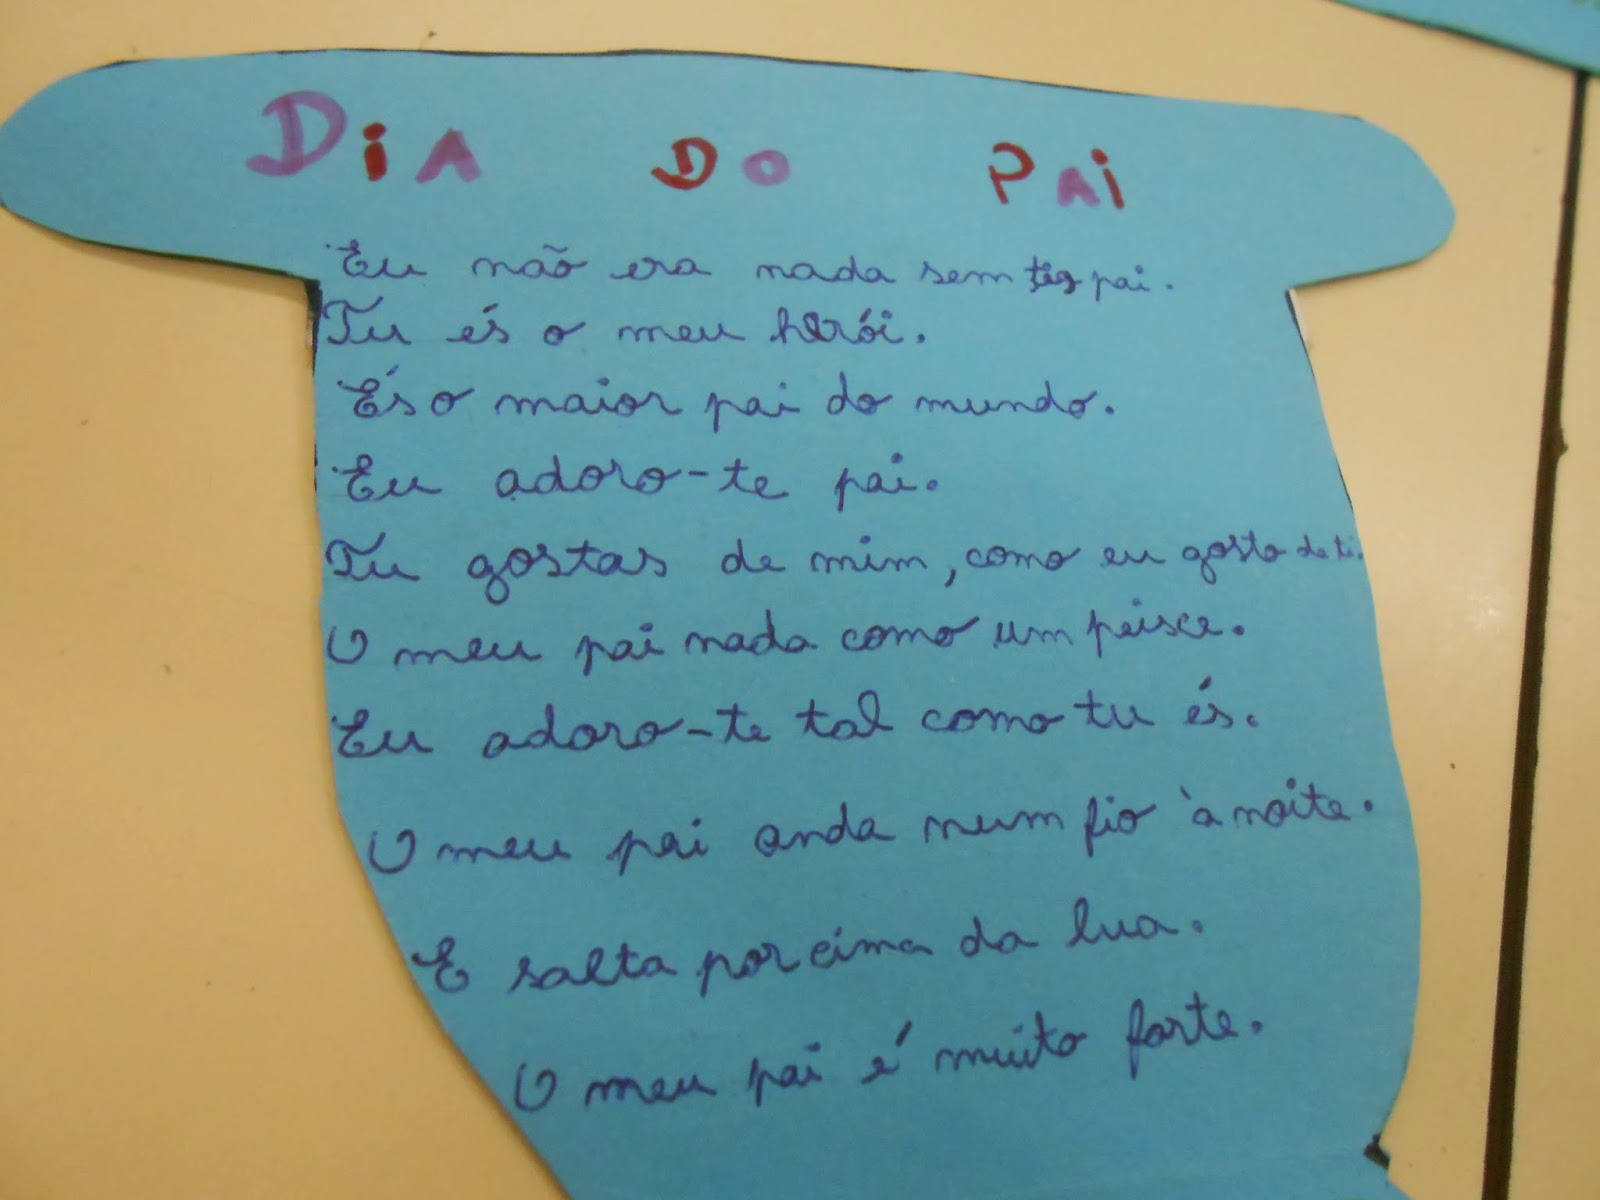 DiA DO PAi
Eu não era nada sem pai.
Tu és o meu herói.
És o maior pai do mundo.
Eu adoro-te pai.
Tu gostas de mim, como eu gosto de ti.
O meu pai nada como um peisce.
Eu adoro-te tal como tu és.
O meu pai anda num fio à noite.
E salta por cima da lua.
O meu pai é muito forte.